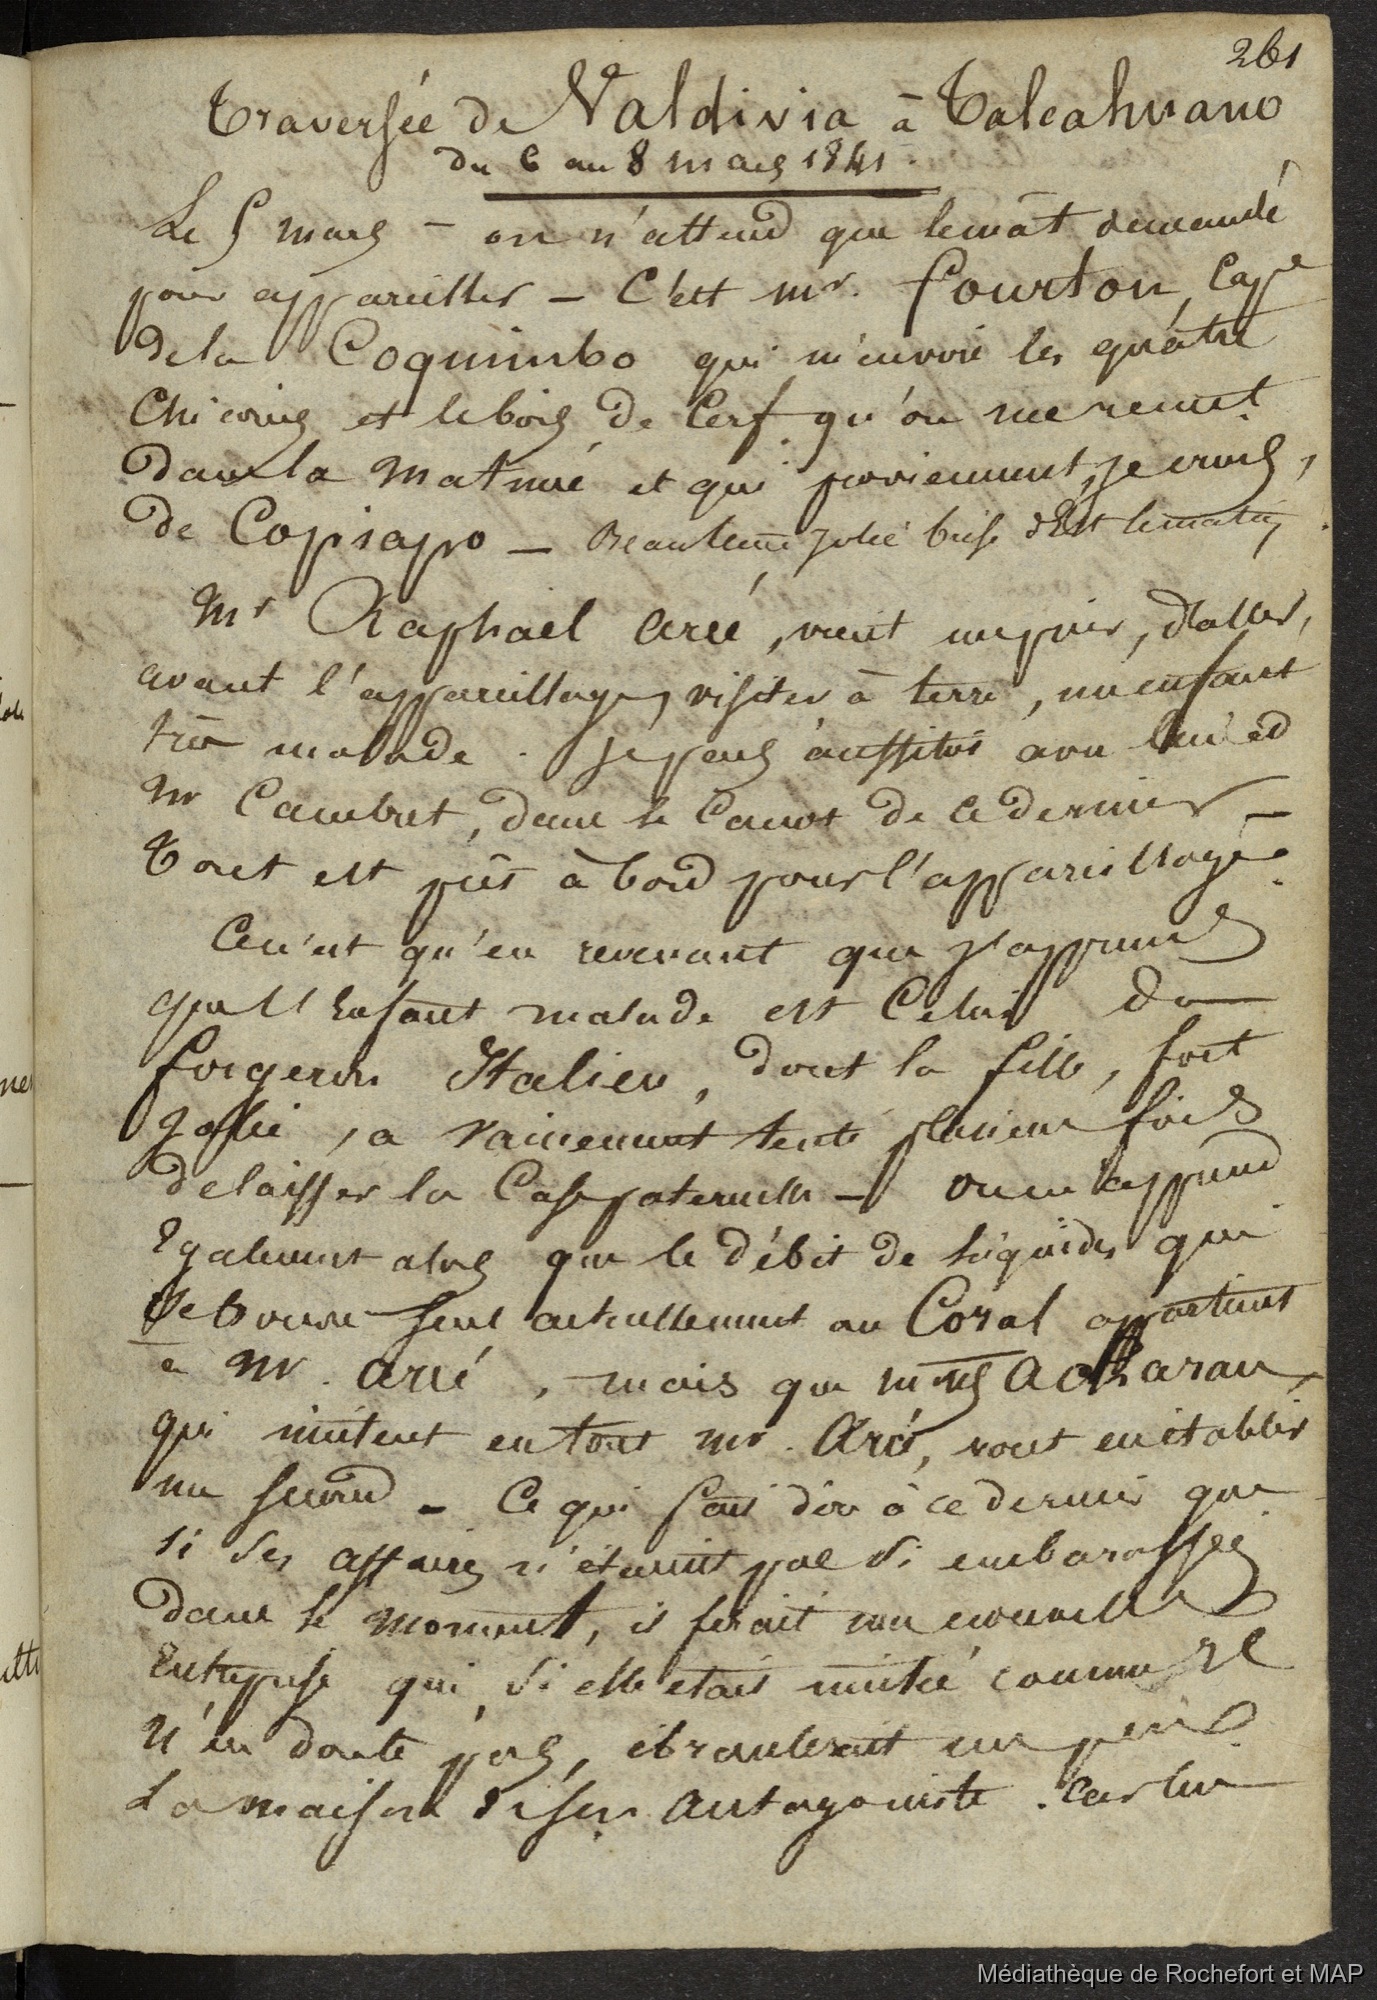 261
Traversée de Valdivia à Talcahuano
du 6 au 8 mars 1841.
Le 5 mars - on n'attend que le mât demandé
pour appareiller - C'est mr. Fourton, Cape
de la Coquimbo qui m'envoie les quatre
et le bois de Cerf qu'on me remet
dans la matinée et qui proviennent, je crois,
de Copiapo - Beau tems jolie brise d'Est le matin.
Mr Raphaël Arcé, vient me prier, d'aller,
avant l'appareillage, visiter à terre, un enfant
très malade. Je pars aussitôt avec lui et
Mr Cambret, dans le Canot de ce dernier -
Tout est prêt à bord pour l'appareillage.
Ce n'est qu'en revenant que j'apprends
que l'Enfant malade est Celui du
forgeron Italien, dont la fille, fort
Jolie, a vainement tenté plusieurs fois
de laisser la Case paternelle - on m'apprend
Egalement alors que le débit de liquides qui
se trouve seul actuellement au Coral appartient
à Mr. Arcé, mais que mrs Acharan,
qui imitent en tout mr. Arcé, vont en établir
un second - Ce qui fait dire à ce dernier que
si ses affaires n'étaient pas si embarassées
dans le moment, il ferait une nouvelle
Entreprise qui, si elle était imitée comme il
n'en doute pas, ébranlerait un peu
La maison de son antagoniste. Car lui